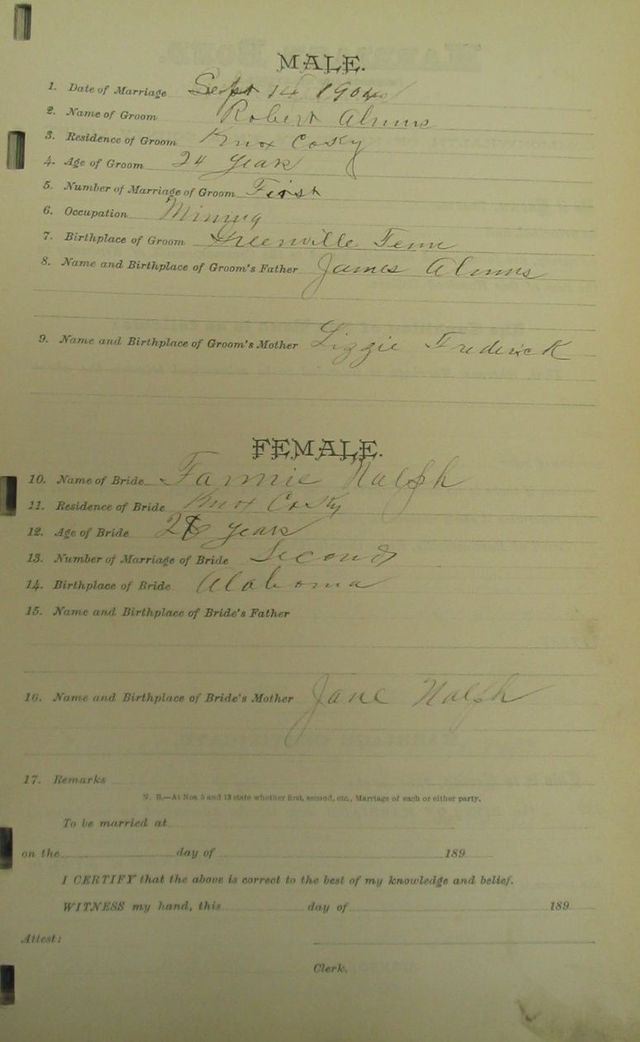 MALE.
1. Date of Marriage Sept 14 1904
2. Name of Groom Robert Alums
3. Residence of Groom Knox Co Ky
4. Age of Groom 24 years
5. Number of Marriage of Groom First
6. Occupation Mining
7. Birthplace of Groom Greenville Tenn
8. Name and Birthplace of Groom's Father James Alums
9. Name and Birthplace of Groom's Mother Lizzie Frederick
FEMALE.
10. Name of Bride Fannie Nalph
11. Residence of Bride Knox Co Ky
12. Age of Bride years
13. Number of Marriage of Bride Second
14. Birthplace of Bride Alaboma
15. Name and Birthplace of Bride's Father
16. Name and Birthplace of Bride's Mother Jane Nalph
17. Remarks
N. B.—At Nos. 5 and 13 state whether first, second, etc., Marriage of each or either party.
To be married at
on the day of 189
I CERTIFY that the above is correct to the best of my knowledge and belief.
WITNESS my hand, this day of 189
Attest:
Clerk.